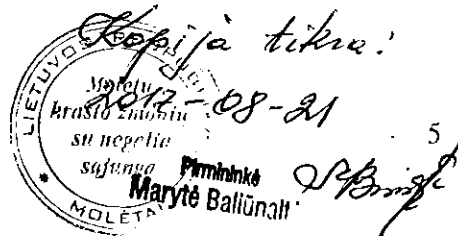 Kopija tikra!
2017-08-21
LIETUVOS
Molėtų
krašto žmonių
su negalia
sąjunga
MOLĖTAI
Pirmininkė
Marytė Baliūnait
5